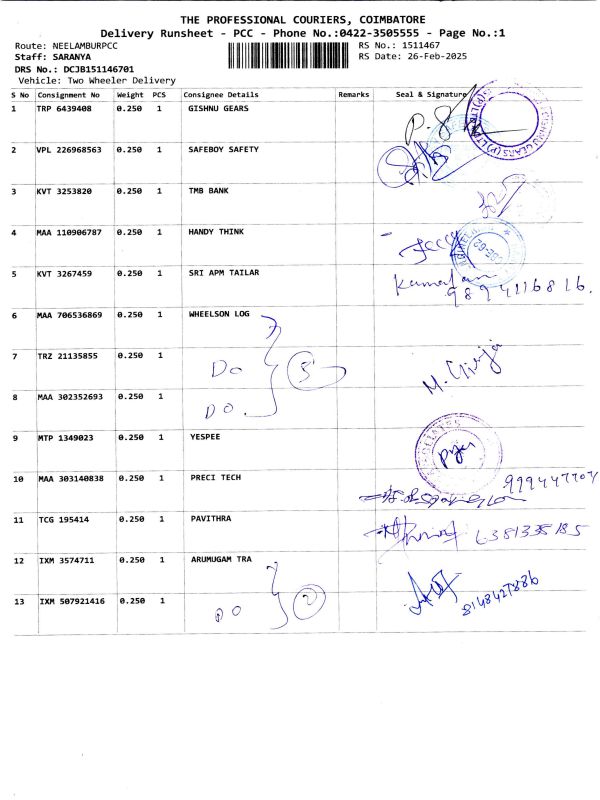 THE PROFESSIONAL COURIERS, COIMBATORE
Delivery Runsheet - PCC - Phone No.:0422-3505555 - Page No.:1
Route: NEELAMBURPCC RS No.: 1511467
Staff: SARANYA RS Date: 26-Feb-2025
DRS No.: DCJB151146701
Vehicle: Two Wheeler Delivery
S No Consignment No Weight PCS Consignee Details Remarks Seal & Signature
1 TRP 6439408 0.250 1 GISHNU GEARS
2 VPL 226968563 0.250 1 SAFEBOY SAFETY
3 KVT 3253820 0.250 1 TMB BANK
4 MAA 110906787 0.250 1 HANDY THINK
5 KVT 3267459 0.250 1 SRI APM TAILAR
9894116816.
6 MAA 706536869 0.250 1 WHEELSON LOG
7 TRZ 21135855 0.250 1 Do 3 M. Girija
8 MAA 302352693 0.250 1 DO.
9 MTP 1349023 0.250 1 YESPEE
10 MAA 303140838 0.250 1 PRECI TECH
11 TCG 195414 0.250 1 PAVITHRA
12 IXM 3574711 0.250 1 ARUMUGAM TRA
13 IXM 507921416 0.250 1 DO 2